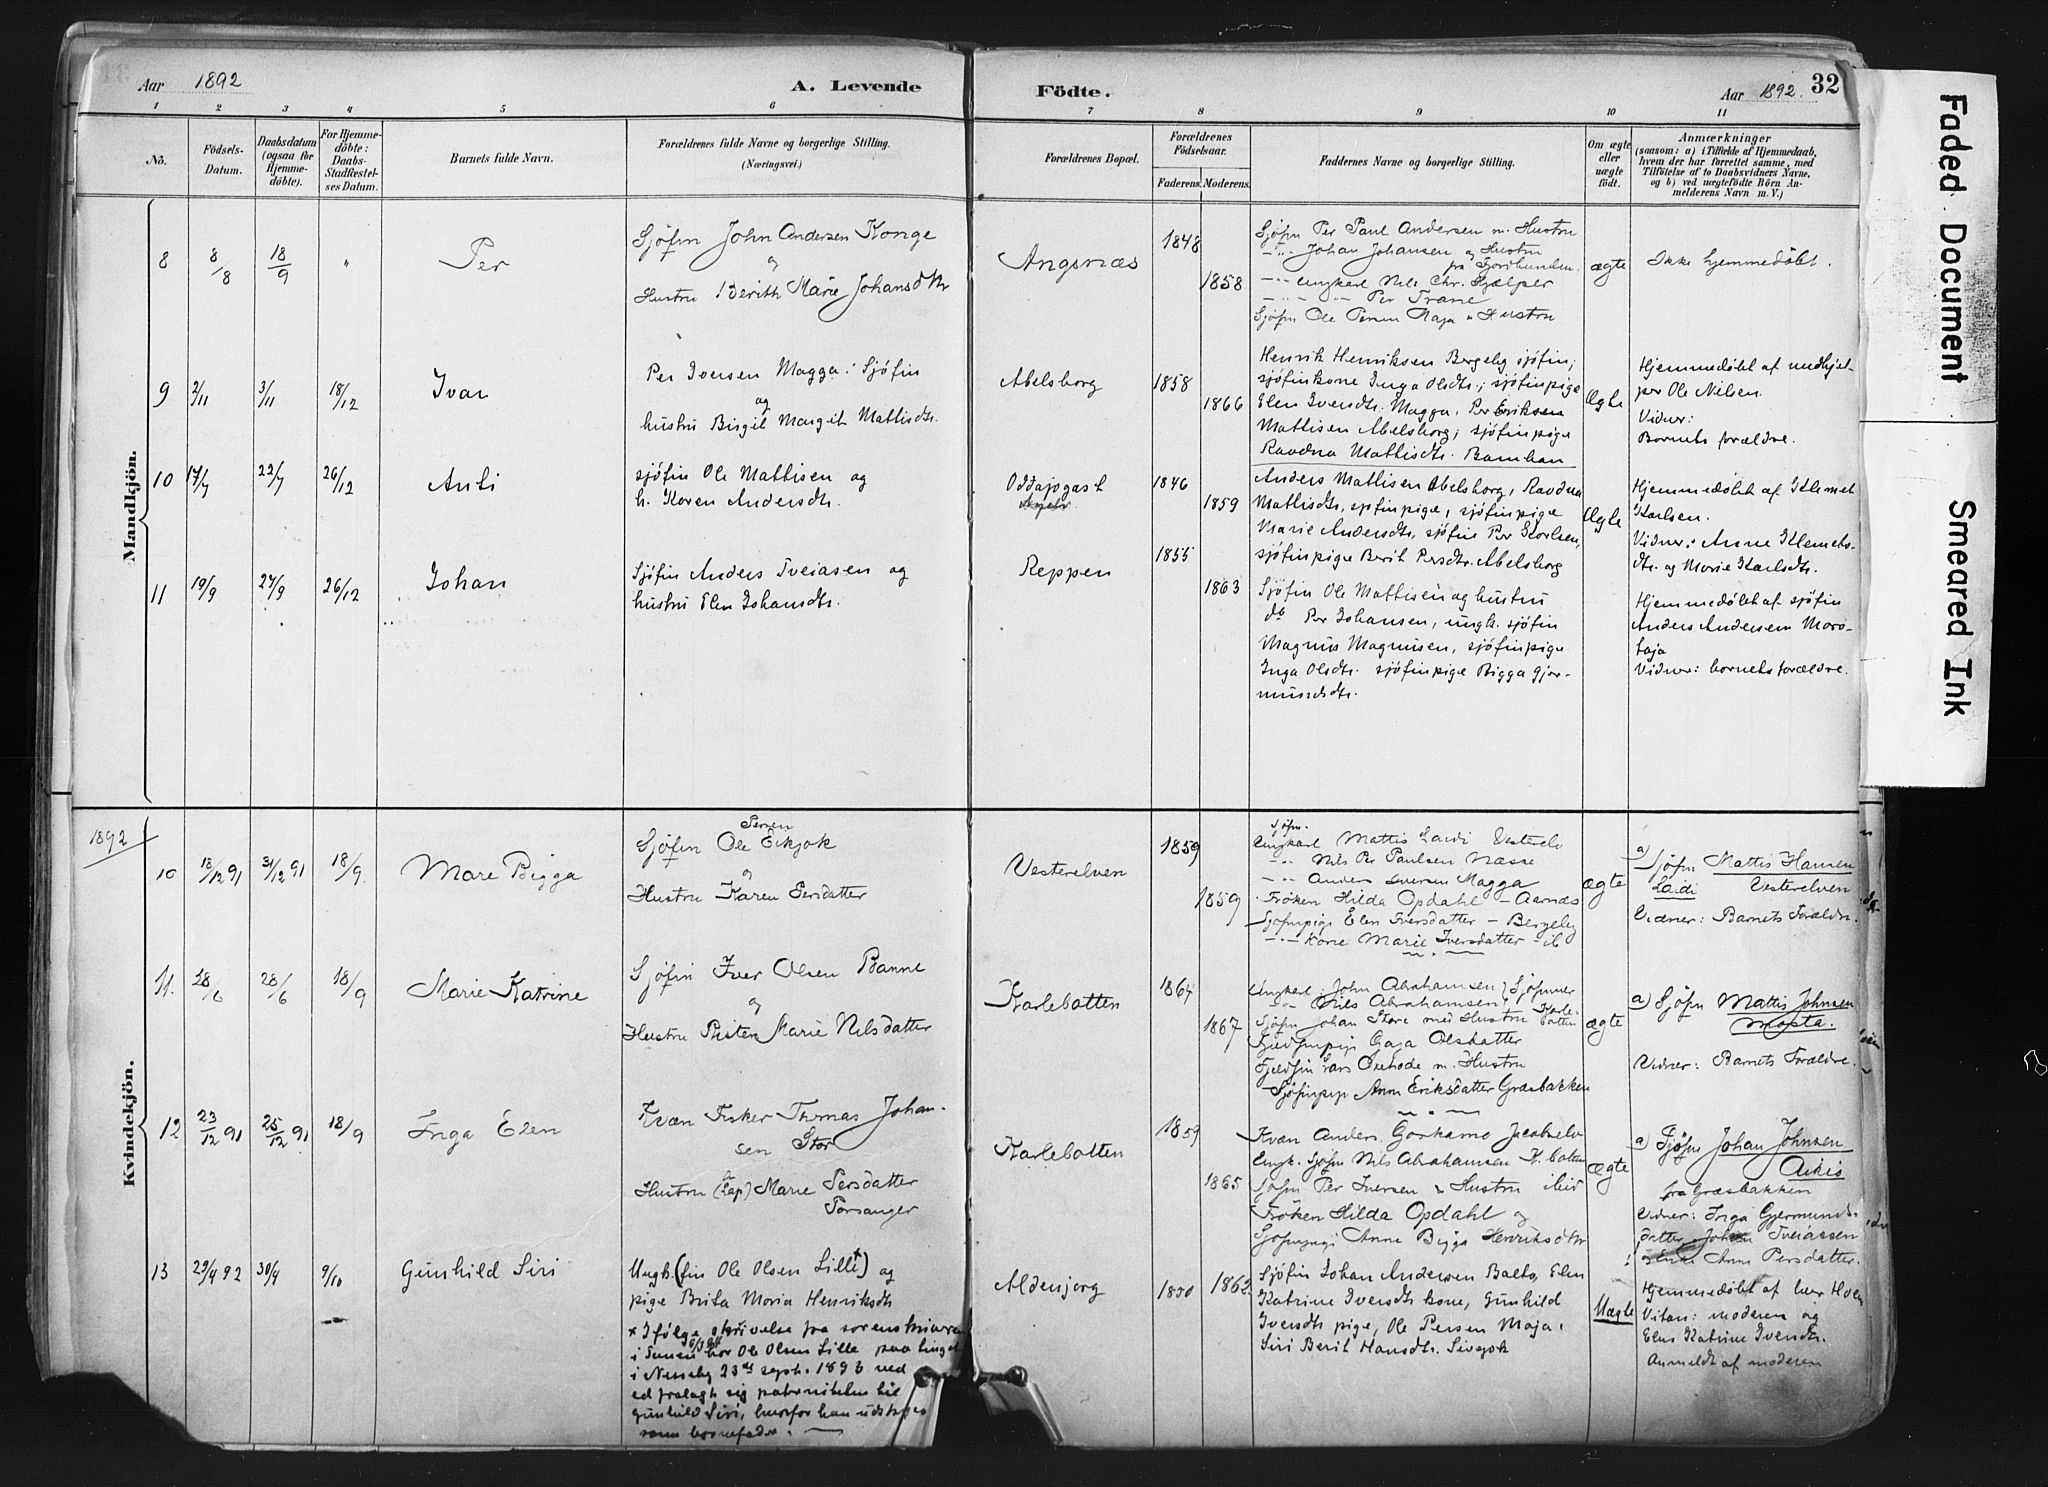 Aar 1892
A. Levende Födte.
Aar 1892. 32
1 2 3 4 5 6 7 8 9 10 11
No.
Födsels-
Datum.
Daabsdatum
(ogsaa for
Hjemme-
döbte).
For Hjemme-
döbte:
Daabs-
Stadfæstel-
ses Datum.
Barnets fulde Navn.
Forældrenes fulde Navne og borgerlige Stilling.
(Næringsvei.)
Forældrenes Bopæl.
Forældrenes
Födselsaar.
Faderens. Moderens.
Faddernes Navne og borgerlige Stilling.
Om ægte
eller
uægte
födt.
Anmærkninger
(saasom: a) i Tilfælde af Hjemmedaab,
hvem der har forrettet samme, med
Tilföielse af to Daabsvidners Navne,
og b) ved uægtefödte Börn An-
melderens Navn m. V.)
Mandkjön.
8 8/8 18/9 " Per
Sjöfin John Andersen Konge
og
Hustru Berith Marie Johansdtr
Angsnæs
1848
1858
Sjöfin Per Paul Andersen m. Hustru
-"- Johan Johansen og Hustru
fra Fjordbunden.
-"- Ungkarl Nils Chr. Hjælper
-"- -"- Per Trane
Sjöfin Ole Persen Maja m Hustru
ægte
Ikke hjemmedöbt.
9 2/11 3/11 18/12 Ivar
Per Iversen Magga: Sjöfin
og
hustru Birgit Margit Mattisdtr.
Abelsborg
1858
1866
Henrik Henriksen Bergeby sjöfin;
sjöfinkone Inga Olsdtr.; sjöfinpige
Elen Iversdtr. Magga, Per Eriksen
Mattisen Abelsborg; sjöfinpige
Ravdna Mattisdtr.
Ægte
Hjemmedöbt af medhjel-
per Ole Nilsen.
Vidner:
Barnets forældre.
10 17/7 22/7 26/12 Anti
sjöfin Ole Mattisen og
h. Karen Andersdtr.
Oddajogast
1846
1859
Anders Mattisen Abelsborg, Ravdna
Mattisdtr, sjöfinpige, sjöfinpige
Marie Andersdtr, sjöfin Per Karlsen,
sjöfinpige Berit Persdtr. Abelsborg
Ægte
Hjemmedöbt af Klemet
Karlsen.
Vidner: Anne Klemets-
dtr. og Marie Karlsdtr.
11 19/9 27/9 26/12 Johan
Sjöfin Anders Tveiasen og
hustru Elen Johansdtr.
Reppen
1855
1863
Sjöfin Ole Mattisen og hustru
do Per Johansen, ungk. sjöfin
Magnus Magnusen, sjöfinpige
Inga Olsdtr. sjöfinpige Bigga Gjer-
mundsdtr.
Hjemmedöbt af sjöfin
Anders Andersen Moro-
taja
Vidner: barnets forældre.
1892
Kvindekjön.
10 18/12 91 31/12 91 18/9 Mare Bigga
Persen
Sjöfin Ole Eikjok
og
Hustru Karen Persdatter
Vesterelven
1859
1859
Sjöfn.
Ungkarl Mattis Laidi Vesterelv
-"- Nils Per Paulsen Næsse
-"- Anders Iversen Magga
Fröken Hilda Opdahl - Aarnæs
Sjöfinpige Elen Iversdatter - Bergeby
-"- Kone Marie Iversdatter - ib
ægte
a) Sjöfin Mattis Hansen
Laidi Vesterelven
Vidner: Barnets Forældre.
11. 28/6 28/6 18/9 Marie Katrine
Sjöfin Iver Olsen Banne
og
Hustru Marie Nilsdatter
Karlebotten
1864
1867
Ungkarl: John Abrahamsen } Sjöfinner
-"- Nils Abrahamsen } Karle-
Sjöfin Johan Store med Hustru botten
Fjeldfinpige Gaja Olsdatter
Fjeldfin Lars m. Hustru
Sjöfinpige Anne Eriksdatter Græsbakken
ægte
a) Sjöfn Mattis Johnsen
Mosta.
Vidner: Barnets Forældre.
12 23/12 91 25/12 91 18/9 Inga Elen
Kvæn Fisker Thomas Johan-
sen Stor
Hustru (Lap) Marie Persdatter
Porsanger
Karlebotten
1859
1865
Kvæn Anders Jacobselv
Ungk. Sjöfn Nils Abrahamsen K.botten
Sjöfn Per Iversen & Hustru ibid
Fröken Hilda Opdahl og
Sjöfinpige Anne Bigga Henriksdtr
ægte
a) Sjöfn Johan Johnsen
Aikio
fra Græsbakken
Vidner: Inga Gjermunds-
datter, Johan Tveiassen
Enke Ann Persdatter.
13 29/4 92 30/4 9/10 Gunhild Siri
Ungk. (fin Ole Olsen Lille+) og
pige Brita Maria Henriksdtr
+ Ifölge skrivelse fra sorenskriveren
i Tanen har Ole Olsen Lille paa tinget
i Nesseby 23de sept. 1893 ved
ed fralagt sig paterniteten til
Gunhild Siri, hvorfor han udstryges
som barnefader. —
Aldenjorg
1850 1862.
Sjöfin Johan Andersen Balto, Elen
Katrine Iversdtr kone, Gunhild
Iversdtr pige, Ole Persen Maja,
Siri Berit Hansdtr. Sivejok
Uægte
Hjemmedöbt af
moderen og
Elen Katrine Iversdtr.
Anmeldt af moderen
Faded Document
Smeared Ink